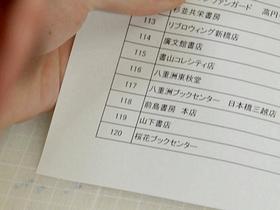 杉並共栄書房
113 リブロウィング新橋店
114 廣文館書店
115 書山コレシティ店
116 八重洲東秋堂
117 八重洲ブックセンター 日本橋三越店
118 前島書房 本店
119 山下書店
120 桜花ブックセンター